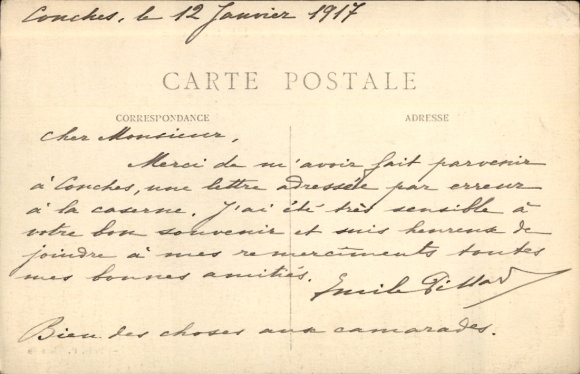 Conches, le 12 Janvier 1917
CARTE POSTALE
CORRESPONDANCE ADRESSE
Cher Monsieur,
Merci de m'avoir fait parvenir
à Conches, une lettre adressée par erreur
à la caserne. J'ai été très sensible à
votre bon souvenir et suis heureux de
joindre à mes remerciments toutes
mes bonnes amitiés.
Emile
Bien des choses aux camarades.